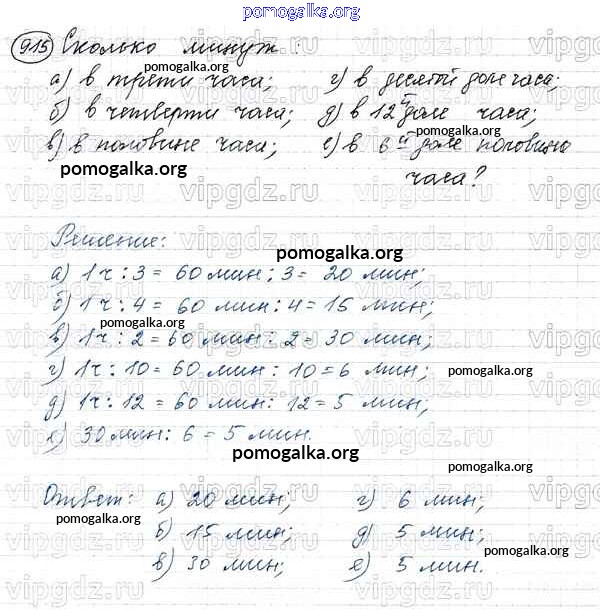 pomogalka.org
915 Сколько минут:
а) в трети часа; г) в десятой доле часа;
б) в четверти часа; д) в 12й доле часа;
в) в половине часа; е) в 6й доле половины
часа?
Решение:
а) 1ч : 3 = 60 мин : 3 = 20 мин;
б) 1ч : 4 = 60 мин : 4 = 15 мин;
в) 1ч : 2 = 60 мин : 2 = 30 мин;
г) 1ч : 10 = 60 мин : 10 = 6 мин;
д) 1ч : 12 = 60 мин : 12 = 5 мин;
е) 30 мин : 6 = 5 мин.
Ответ: а) 20 мин; г) 6 мин;
б) 15 мин; д) 5 мин;
в) 30 мин; е) 5 мин.